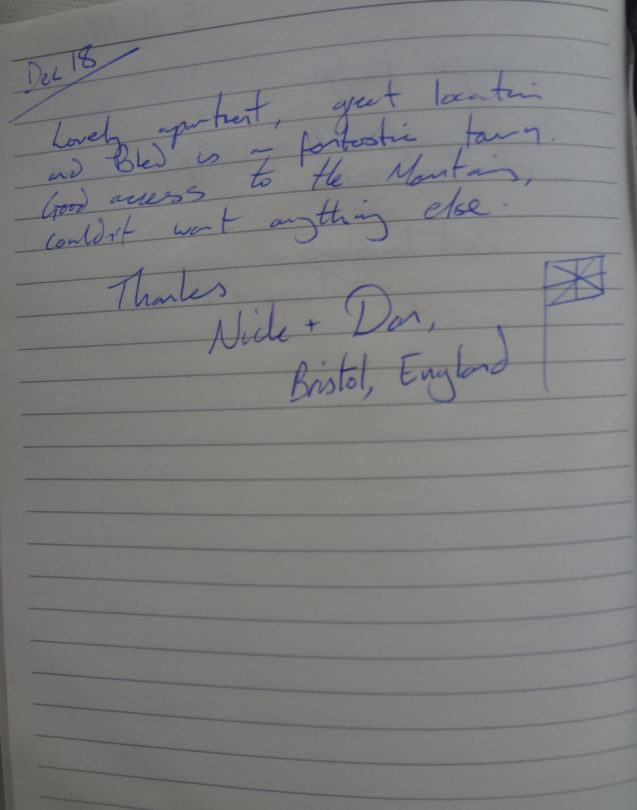 Dec 18
Lovely apartment, great location
and Bled is a fantastic town.
Good access to the Mountains,
couldn't want anything else.
Thanks
Nick + Dan,
Bristol, England